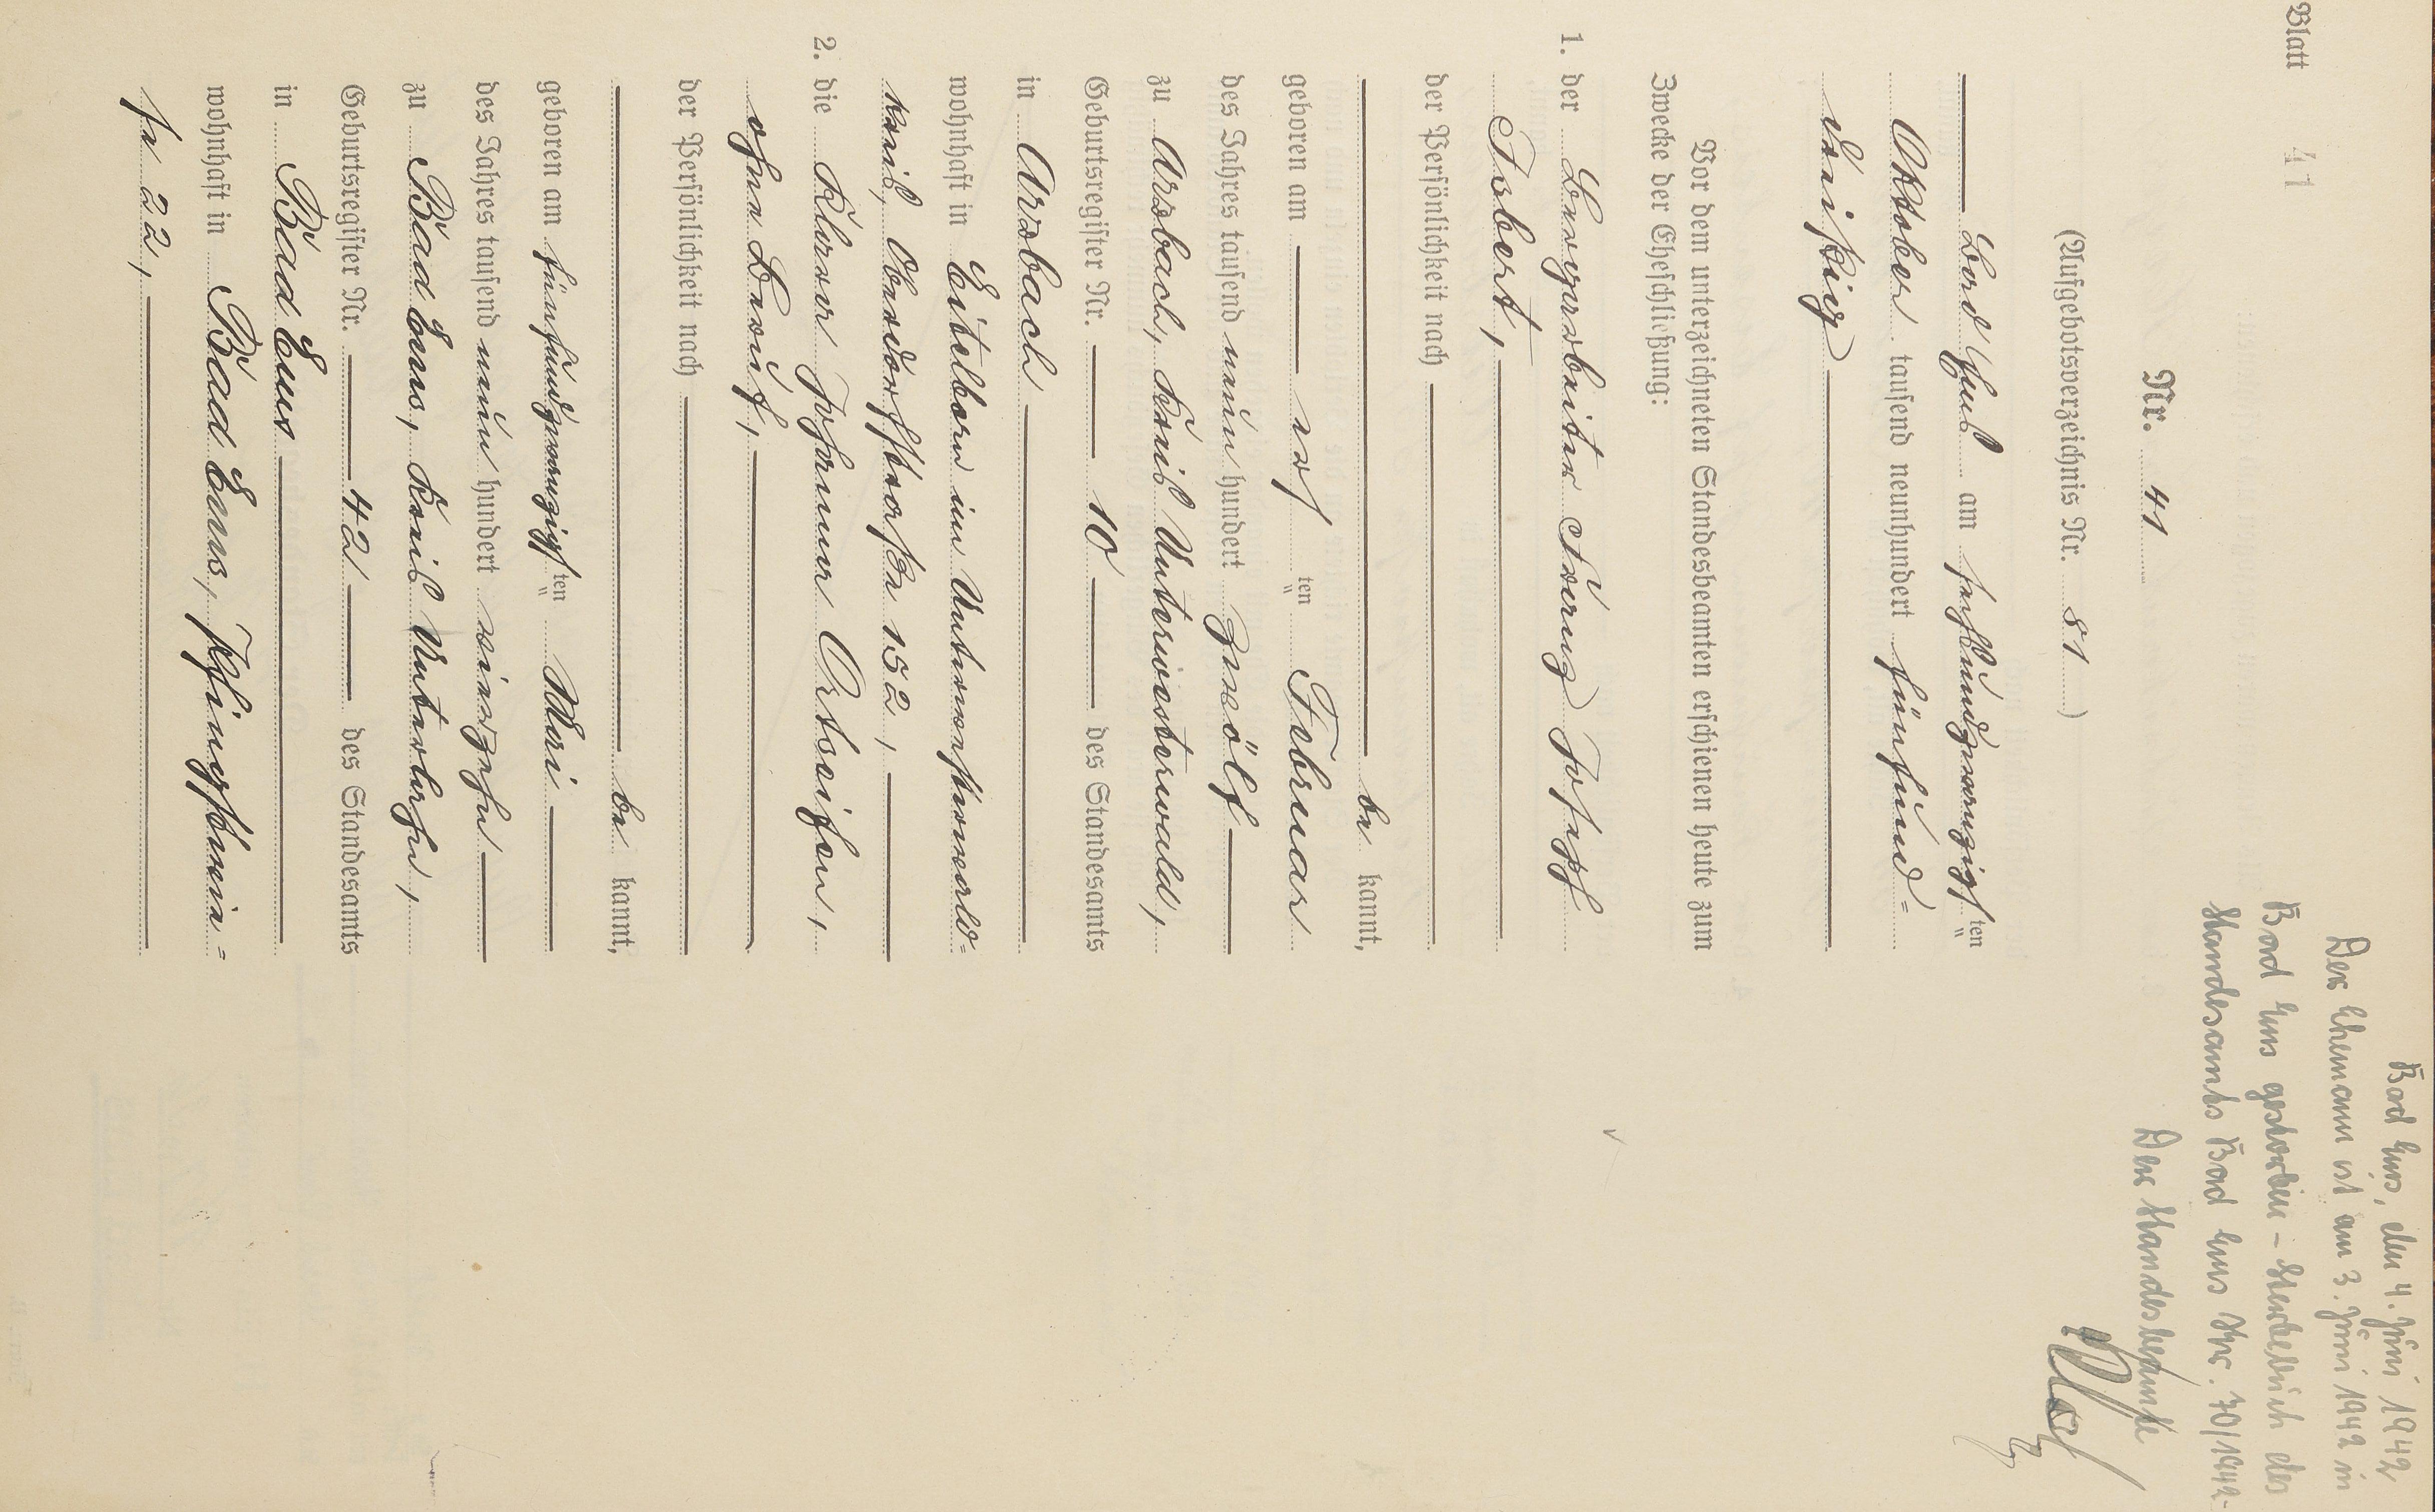 Blatt 41
Bad Ems, den 4. Juni 1942
Der Ehemann ist am 3. Juni 1942 in
Bad Ems gestorben – Sterbebuch des
Standesamts Bad Ems Nr. 70/1942.
Der Standesbeamte
Nr. 41
(Aufgebotsverzeichnis Nr. 81)
Bad Ems am sechsundzwanzigsten
Oktober tausend neunhundert fünfund=
dreißig
Vor dem unterzeichneten Standesbeamten erschienen heute zum
Zwecke der Eheschließung:
1. der Bergarbeiter Franz Josef
Isbert,
der Persönlichkeit nach
be kannt,
geboren am ten Februar
des Jahres tausend neun hundert zwölf
zu Arzbach, Kreis Unterwesterwald,
Geburtsregister Nr. 10 des Standesamts
in Arzbach
wohnhaft in Eitelborn im Unterwesterwald=
kreis, 152,
2. die Klara Johanna Ortseifen,
ohne Beruf,
der Persönlichkeit nach
be kannt,
geboren am fünfundzwanzigsten Mai
des Jahres tausend neun hundert vierzehn
zu Bad Ems, Kreis Unterlahn,
Geburtsregister Nr. 42 des Standesamts
in Bad Ems
wohnhaft in Bad Ems, Pfingstwie=
se 22,